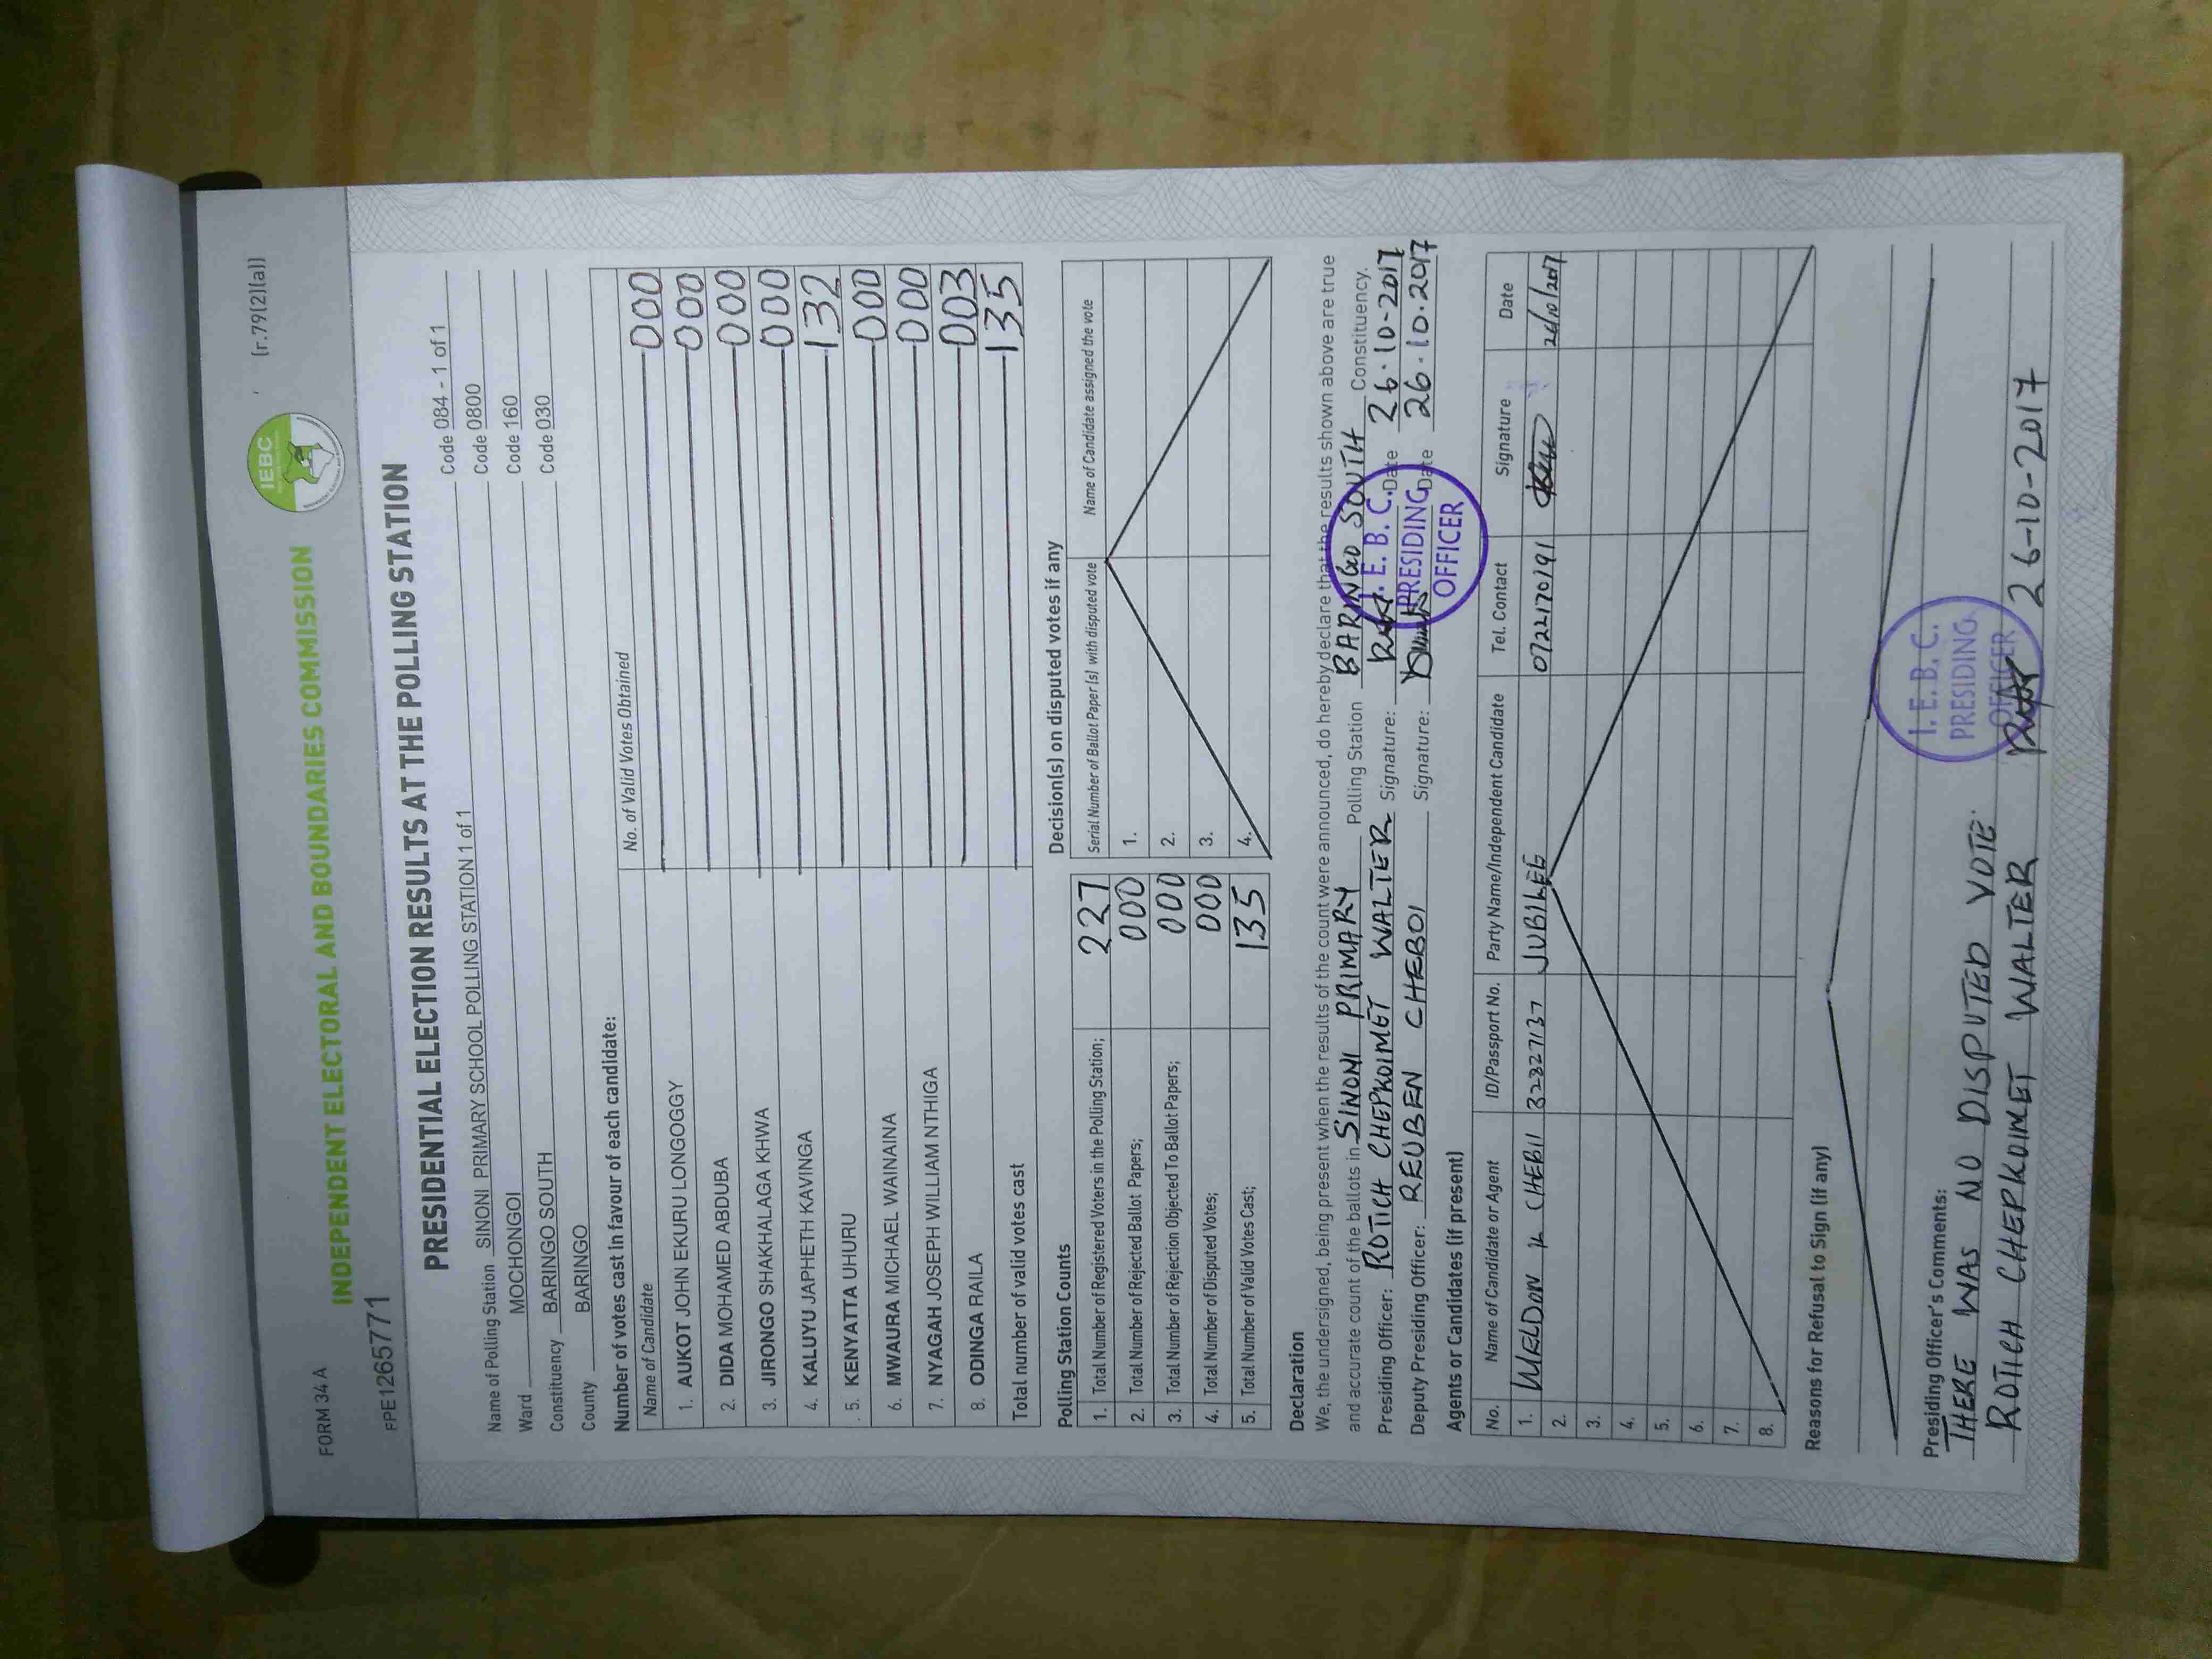 FORM 34 A
[r.79(2)(a)]
IEBC
INDEPENDENT ELECTORAL AND BOUNDARIES COMMISSION
FPE1265771
PRESIDENTIAL ELECTION RESULTS AT THE POLLING STATION
Name of Polling Station SINONI PRIMARY SCHOOL POLLING STATION 1 of 1 Code 084 - 1 of 1
Ward MOCHONGOI Code 0800
Constituency BARINGO SOUTH Code 160
County BARINGO Code 030
Number of votes cast in favour of each candidate:
Name of Candidate No. of Valid Votes Obtained
1. AUKOT JOHN EKURU LONGOGGY 000
2. DIDA MOHAMED ABDUBA 000
3. JIRONGO SHAKHALAGA KHWA 000
4. KALUYU JAPHETH KAVINGA 000
5. KENYATTA UHURU 132
6. MWAURA MICHAEL WAINAINA 000
7. NYAGAH JOSEPH WILLIAM NTHIGA 000
8. ODINGA RAILA 003
Total number of valid votes cast 135
Polling Station Counts
1. Total Number of Registered Voters in the Polling Station; 227
2. Total Number of Rejected Ballot Papers; 000
3. Total Number of Rejection Objected To Ballot Papers; 000
4. Total Number of Disputed Votes; 000
5. Total Number of Valid Votes Cast; 135
Decision(s) on disputed votes if any
Serial Number of Ballot Paper (s) with disputed vote Name of Candidate assigned the vote
1.
2.
3.
4.
Declaration
We, the undersigned, being present when the results of the count were announced, do hereby declare that the results shown above are true
and accurate count of the ballots in SINONI PRIMARY Polling Station BARINGO SOUTH Constituency.
Presiding Officer: ROTICH CHEPKOIMET WALTER Signature: Date 26-10-2017
Deputy Presiding Officer: REUBEN CHEBOI Signature: Date 26.10.2017
I. E. B. C.
PRESIDING
OFFICER
Agents or Candidates (if present)
No. Name of Candidate or Agent ID/Passport No. Party Name/Independent Candidate Tel. Contact Signature Date
1. WELDON K CHEBII 32327137 JUBILEE 0722170191 26/10/2017
2.
3.
4.
5.
6.
7.
8.
Reasons for Refusal to Sign (if any)
Presiding Officer's Comments:
THERE WAS NO DISPUTED VOTE.
ROTICH CHEPKOIMET WALTER 26-10-2017
I. E. B. C.
PRESIDING
OFFICER